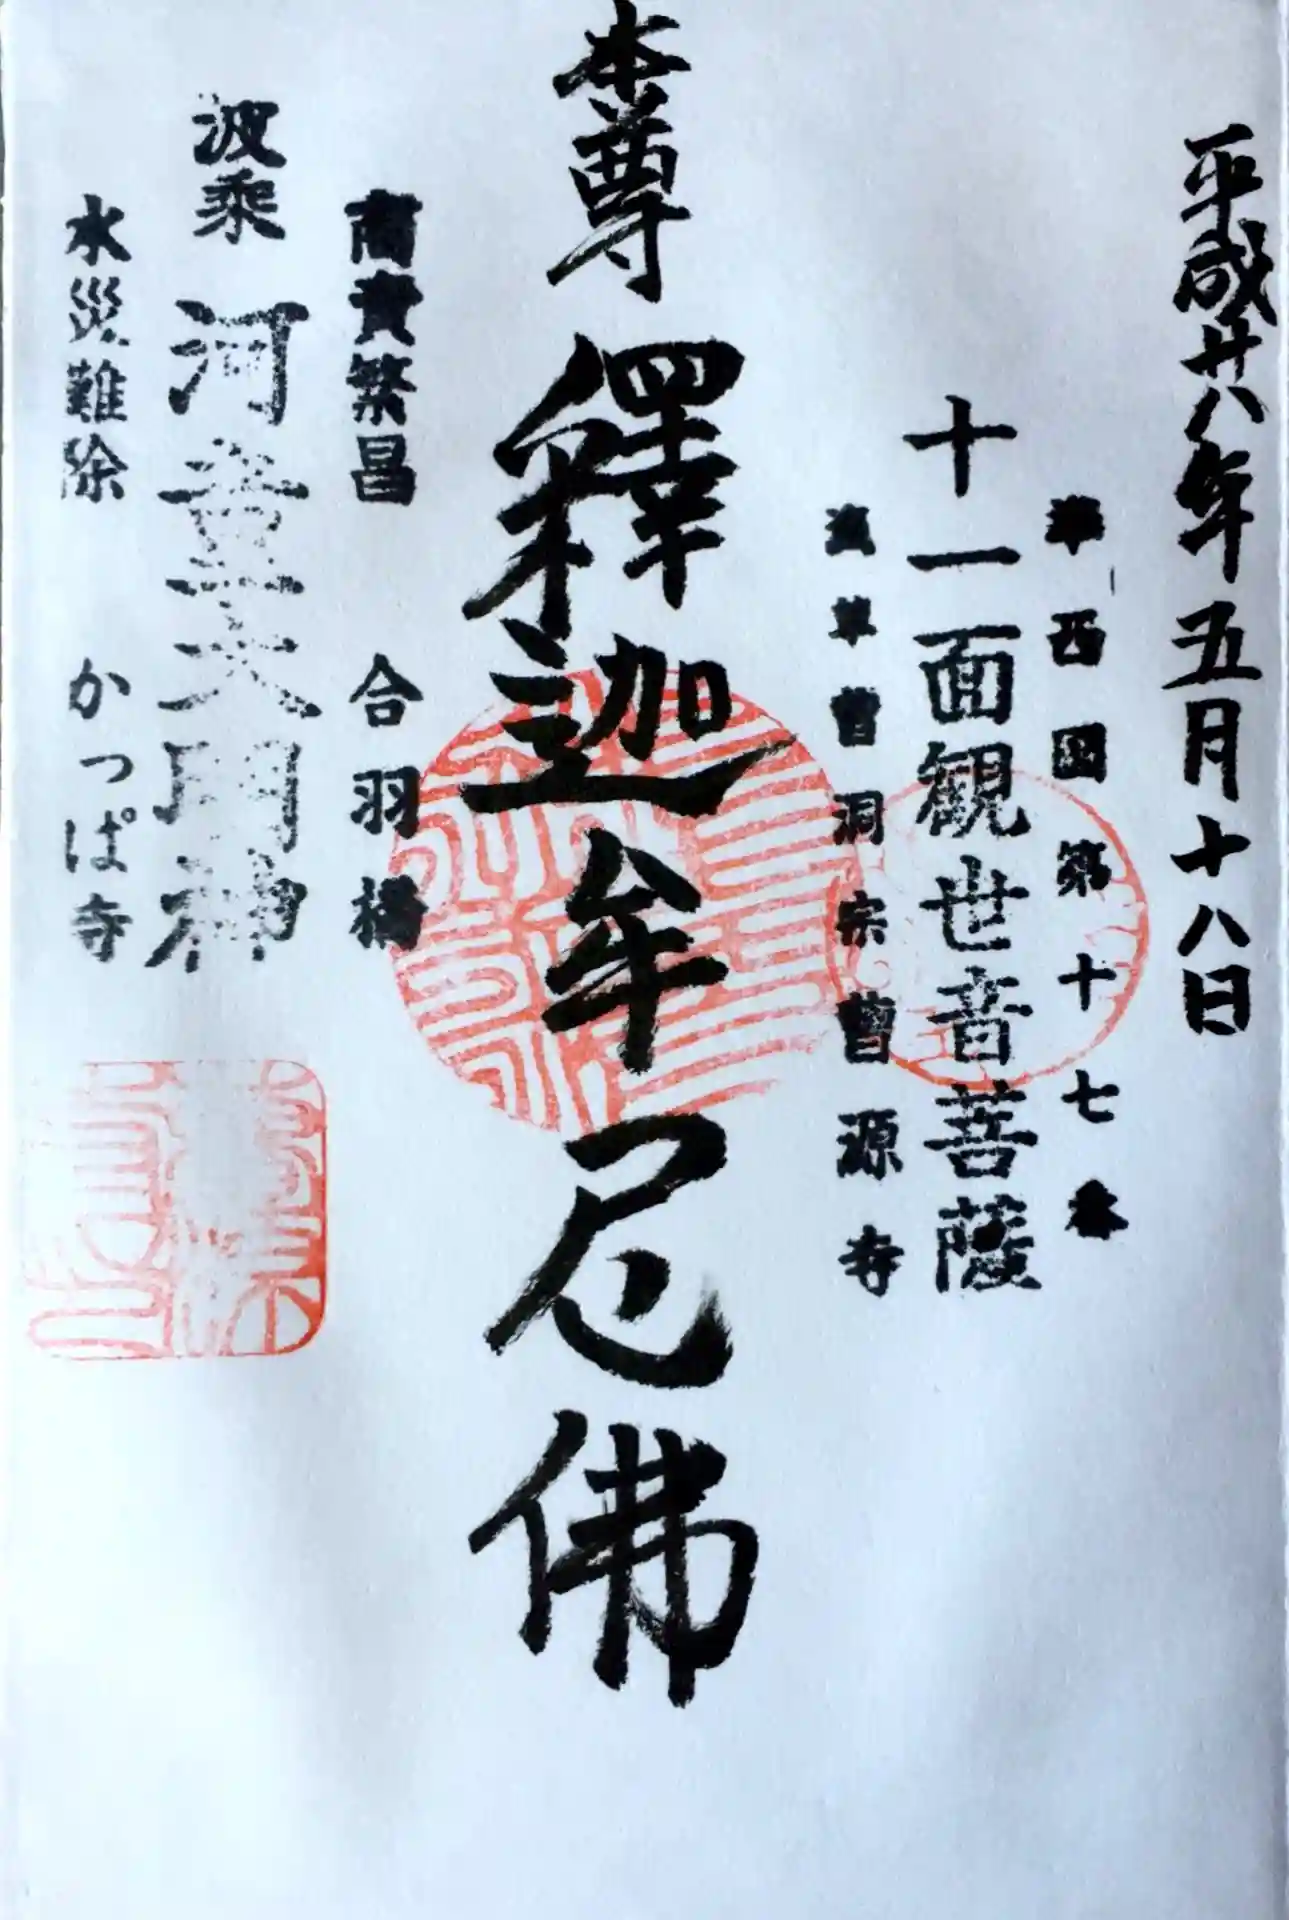 平成廿八年五月十八日
西国第十七番
十一面観世音菩薩
浅草曹洞宗曹源寺
本尊 釋迦牟尼佛
商賣繁昌 合羽橋
波乗 河童大明神
水災難除 かっぱ寺